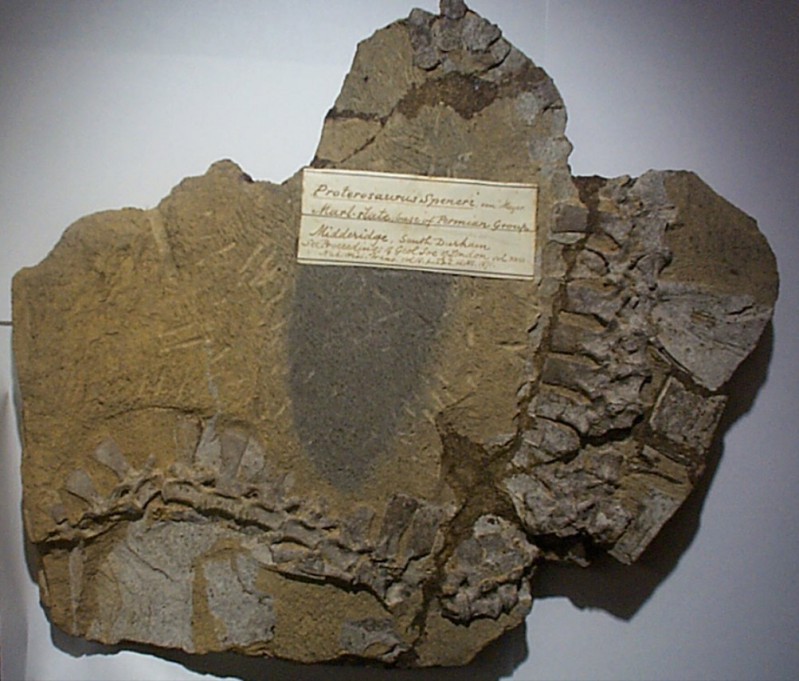 Proterosaurus Speneri von Meyer
Marl-slate, base of Permian Group
Midderidge, South Durham
See Proceedings of Geol. Soc. of London, vol.
Nat. Hist. Trans.